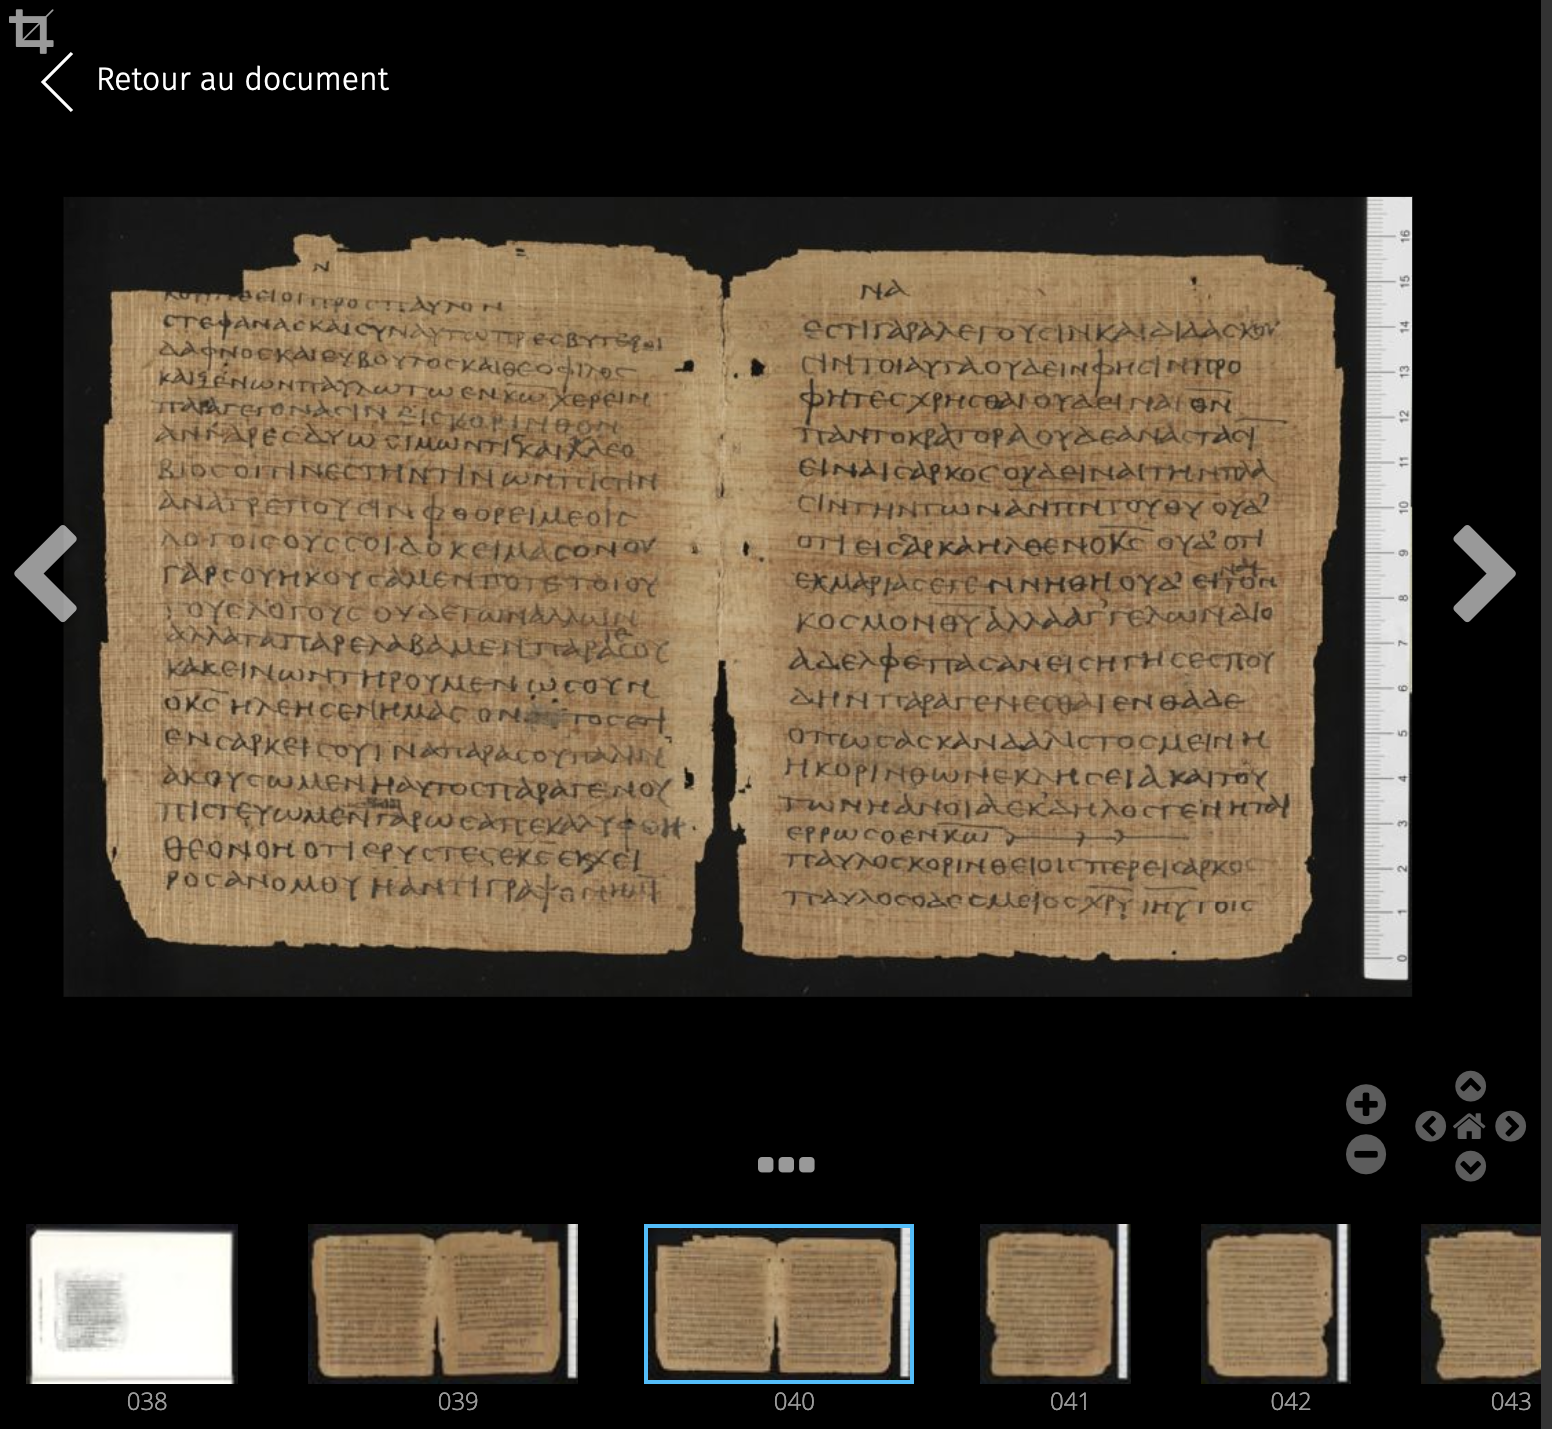 Retour au document
Ν
ΚΟΡΙΝΘΕΙΟΙ ΠΡΟC ΠΑΥΛΟΝ
CΤΕΦΑΝΑC ΚΑΙ CΥΝ ΑΥΤΩ ΠΡΕCΒΥΤΕΡΟΙ
ΔΑΦΝΟC ΚΑΙ ΕΥΒΟΥΤΟC ΚΑΙ ΘΕΟΦΙΛΟC
ΚΑΙ ΞΕΝΩΝ ΠΑΥΛΩ ΤΩ ΕΝ ΚΩ ΧΕΡΕΙΝ
ΠΑΡΑΓΕΓΟΝΑCΙΝ ΕΙC ΚΟΡΙΝΘΟΝ
ΑΝΔΡΕC ΔΥΩ CΙΜΩΝ ΤΙC ΚΑΙ ΚΛΕΟ
ΒΙΟC ΟΙΤΙΝΕC ΤΗΝ ΤΙΝΩΝ ΠΙCΤΙΝ
ΑΝΑΤΡΕΠΟΥCΙΝ ΦΘΟΡΕΙΜΕΟΙC
ΛΟΓΟΙC ΟΥC CΟΙ ΔΟΚΕΙΜΑCΟΝ ΟΥ
ΓΑΡ CΟΥ ΗΚΟΥCΑΜΕΝ ΠΟΤΕ ΤΟΙΟΥ
ΤΟΥC ΛΟΓΟΥC ΟΥΔΕ ΤΩΝ ΑΛΛΩΝ
ΑΛΛΑ ΤΑ ΠΑΡΕΛΑΒΑΜΕΝ ΠΑΡΑ CΟΥ
ΚΑΚΕΙΝΩΝ ΤΗΡΟΥΜΕΝ ΩC ΟΥΝ
Ο ΚC ΗΛΕΗCΕΝ ΗΜΑC ΟΝΤΟC ΕΤΙ
ΕΝ CΑΡΚΕΙ CΟΥ ΙΝΑ ΠΑΡΑ CΟΥ ΠΑΛΙΝ
ΑΚΟΥCΩΜΕΝ Η ΑΥΤΟC ΠΑΡΑΓΕΝΟΥ
ΠΙCΤΕΥΩΜΕΝ ΓΑΡ ΩC ΑΠΕΚΑΛΥΦΘΗ
ΘΕΟΝΟΗ ΟΤΙ ΕΡΥCΤΕ CΕ ΚC ΕΚ ΧΕΙ
ΡΟC ΑΝΟΜΟΥ Η ΑΝΤΙΓΡΑΨΟΝ ΗΜΙΝ
ΝΑ
ΕCΤΙ ΓΑΡ Α ΛΕΓΟΥCΙΝ ΚΑΙ ΔΙΔΑCΚΟΥ
CΙΝ ΤΟΙΑΥΤΑ ΟΥ ΔΕΙΝ ΦΗCΙΝ ΠΡΟ
ΦΗΤΕC ΧΡΗCΘΑΙ ΟΥΔ ΕΙΝΑΙ ΘΝ
ΠΑΝΤΟΚΡΑΤΟΡΑ ΟΥΔΕ ΑΝΑCΤΑCΙ
ΕΙΝΑΙ CΑΡΚΟC ΟΥΔ ΕΙΝΑΙ ΤΗΝ ΠΛΑ
CΙΝ ΤΗΝ ΤΩΝ ΑΝΠΝ ΤΟΥ ΘΥ ΟΥΔ’
ΟΤΙ ΕΙC CΑΡΚΑ ΗΛΘΕΝ Ο ΚC ΟΥΔ’ ΟΤΙ
ΕΚ ΜΑΡΙΑC ΕΓΕΝΝΗΘΗ ΟΥΔ’ ΕΙΝΑΙ ΤΟΝ
ΚΟCΜΟΝ ΘΥ ΑΛΛΑ ΑΓ’ΓΕΛΩΝ ΔΙΟ
ΑΔΕΛΦΕ ΠΑCΑΝ ΕΙCΗΓΗCΕ CΠΟΥ
ΔΗΝ ΠΑΡΑΓΕΝΕCΘΑΙ ΕΝΘΑΔΕ
ΟΠΩC ΑCΚΑΝΔΑΛΙCΤΟC ΜΕΙΝΗ
Η ΚΟΡΙΝΘΩΝ ΕΚΛΗCΕΙΑ ΚΑΙ ΤΟΥ
ΤΩΝ Η ΑΝΟΙΑ ΕΚΔΗΛΟC ΓΕΝΗΤΑΙ
ΕΡΡΩCΟ ΕΝ ΚΩ
ΠΑΥΛΟC ΚΟΡΙΝΘΕΙΟΙC ΠΕΡΕΙ CΑΡΚΟC
ΠΑΥΛΟC Ο ΔΕCΜΕΙΟC ΧΡΥ ΙΗΥ ΤΟΙC
16
15
14
13
12
11
10
9
8
7
6
5
4
3
2
1
0
038
039
040
041
042
043